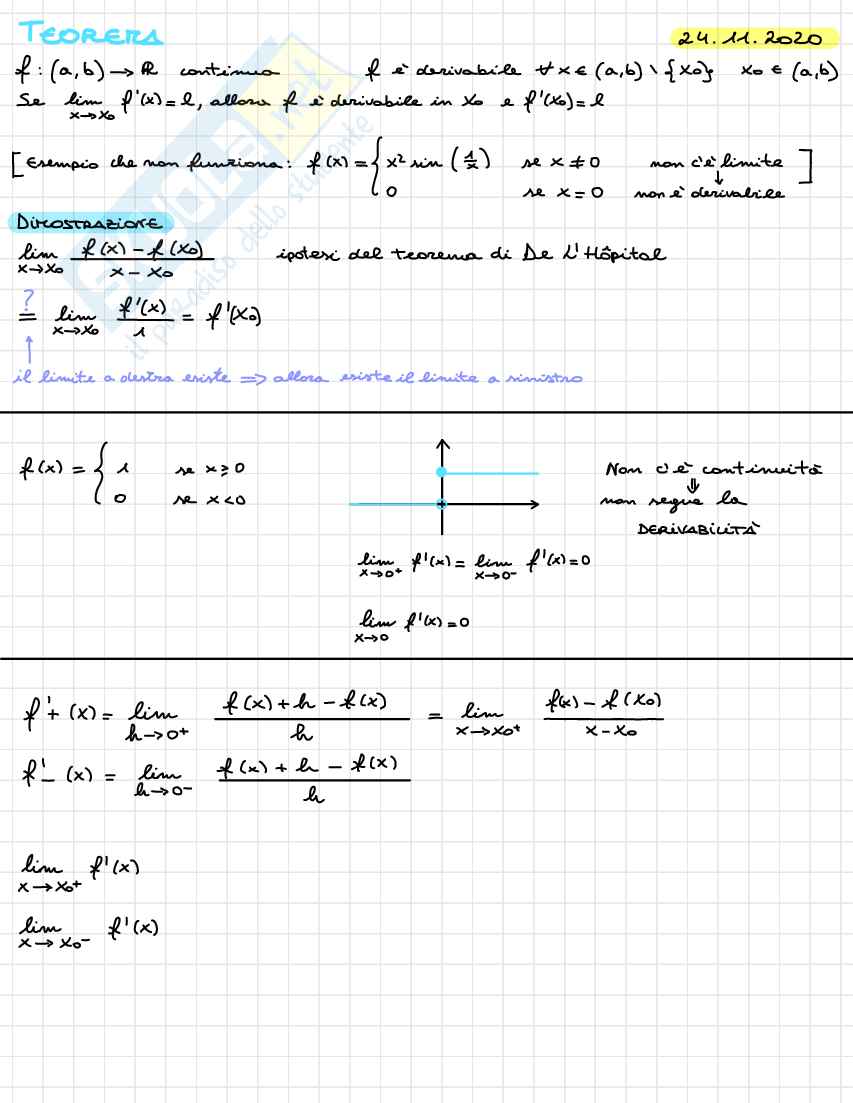 TEOREMA
24.11.2020
f : (a,b) → ℝ continua f è derivabile ∀ x ∈ (a,b) \ {x₀} x₀ ∈ (a,b)
Se lim x→x₀ f'(x) = l, allora f è derivabile in x₀ e f'(x₀) = l
[ Esempio che non funziona: f(x) = { x² sin (1/x) se x ≠ 0 non c'è limite ]
0 se x = 0 ↓ non è derivabile
DIMOSTRAZIONE
lim x→x₀ (f(x) − f(x₀)) / (x − x₀) ipotesi del teorema di De L'Hôpital
?
= lim x→x₀ f'(x) / 1 = f'(x₀)
↑
il limite a destra esiste => allora esiste il limite a sinistro
f(x) = { 1 se x ≥ 0
0 se x < 0
Non c'è continuità
⇓
non segue la
DERIVABILITÀ
lim x→0⁺ f'(x) = lim x→0⁻ f'(x) = 0
lim x→0 f'(x) = 0
f'₊ (x) = lim h→0⁺ (f(x) + h − f(x)) / h = lim x→x₀⁺ (f(x) − f(x₀)) / (x − x₀)
f'₋ (x) = lim h→0⁻ (f(x) + h − f(x)) / h
lim x→x₀⁺ f'(x)
lim x→x₀⁻ f'(x)
il paradiso dello studente